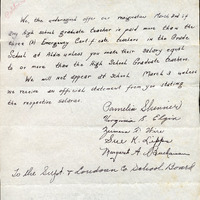 We, the undersigned offer our resignations March 3rd if
any High School graduate teacher is paid more than the
three (3) Emergency Certificate teachers in the Grade
School at Aldie unless you make their salary equal
to or more than the High School Graduate teachers.
We will not appear at School March 3 unless
we receive an official statement from you stating
the respective salaries.
Pamelia Skinner
Virginia B. Elgin
Sue K. Lipps
Margaret A.
To the Supt & Loudoun Co School Board